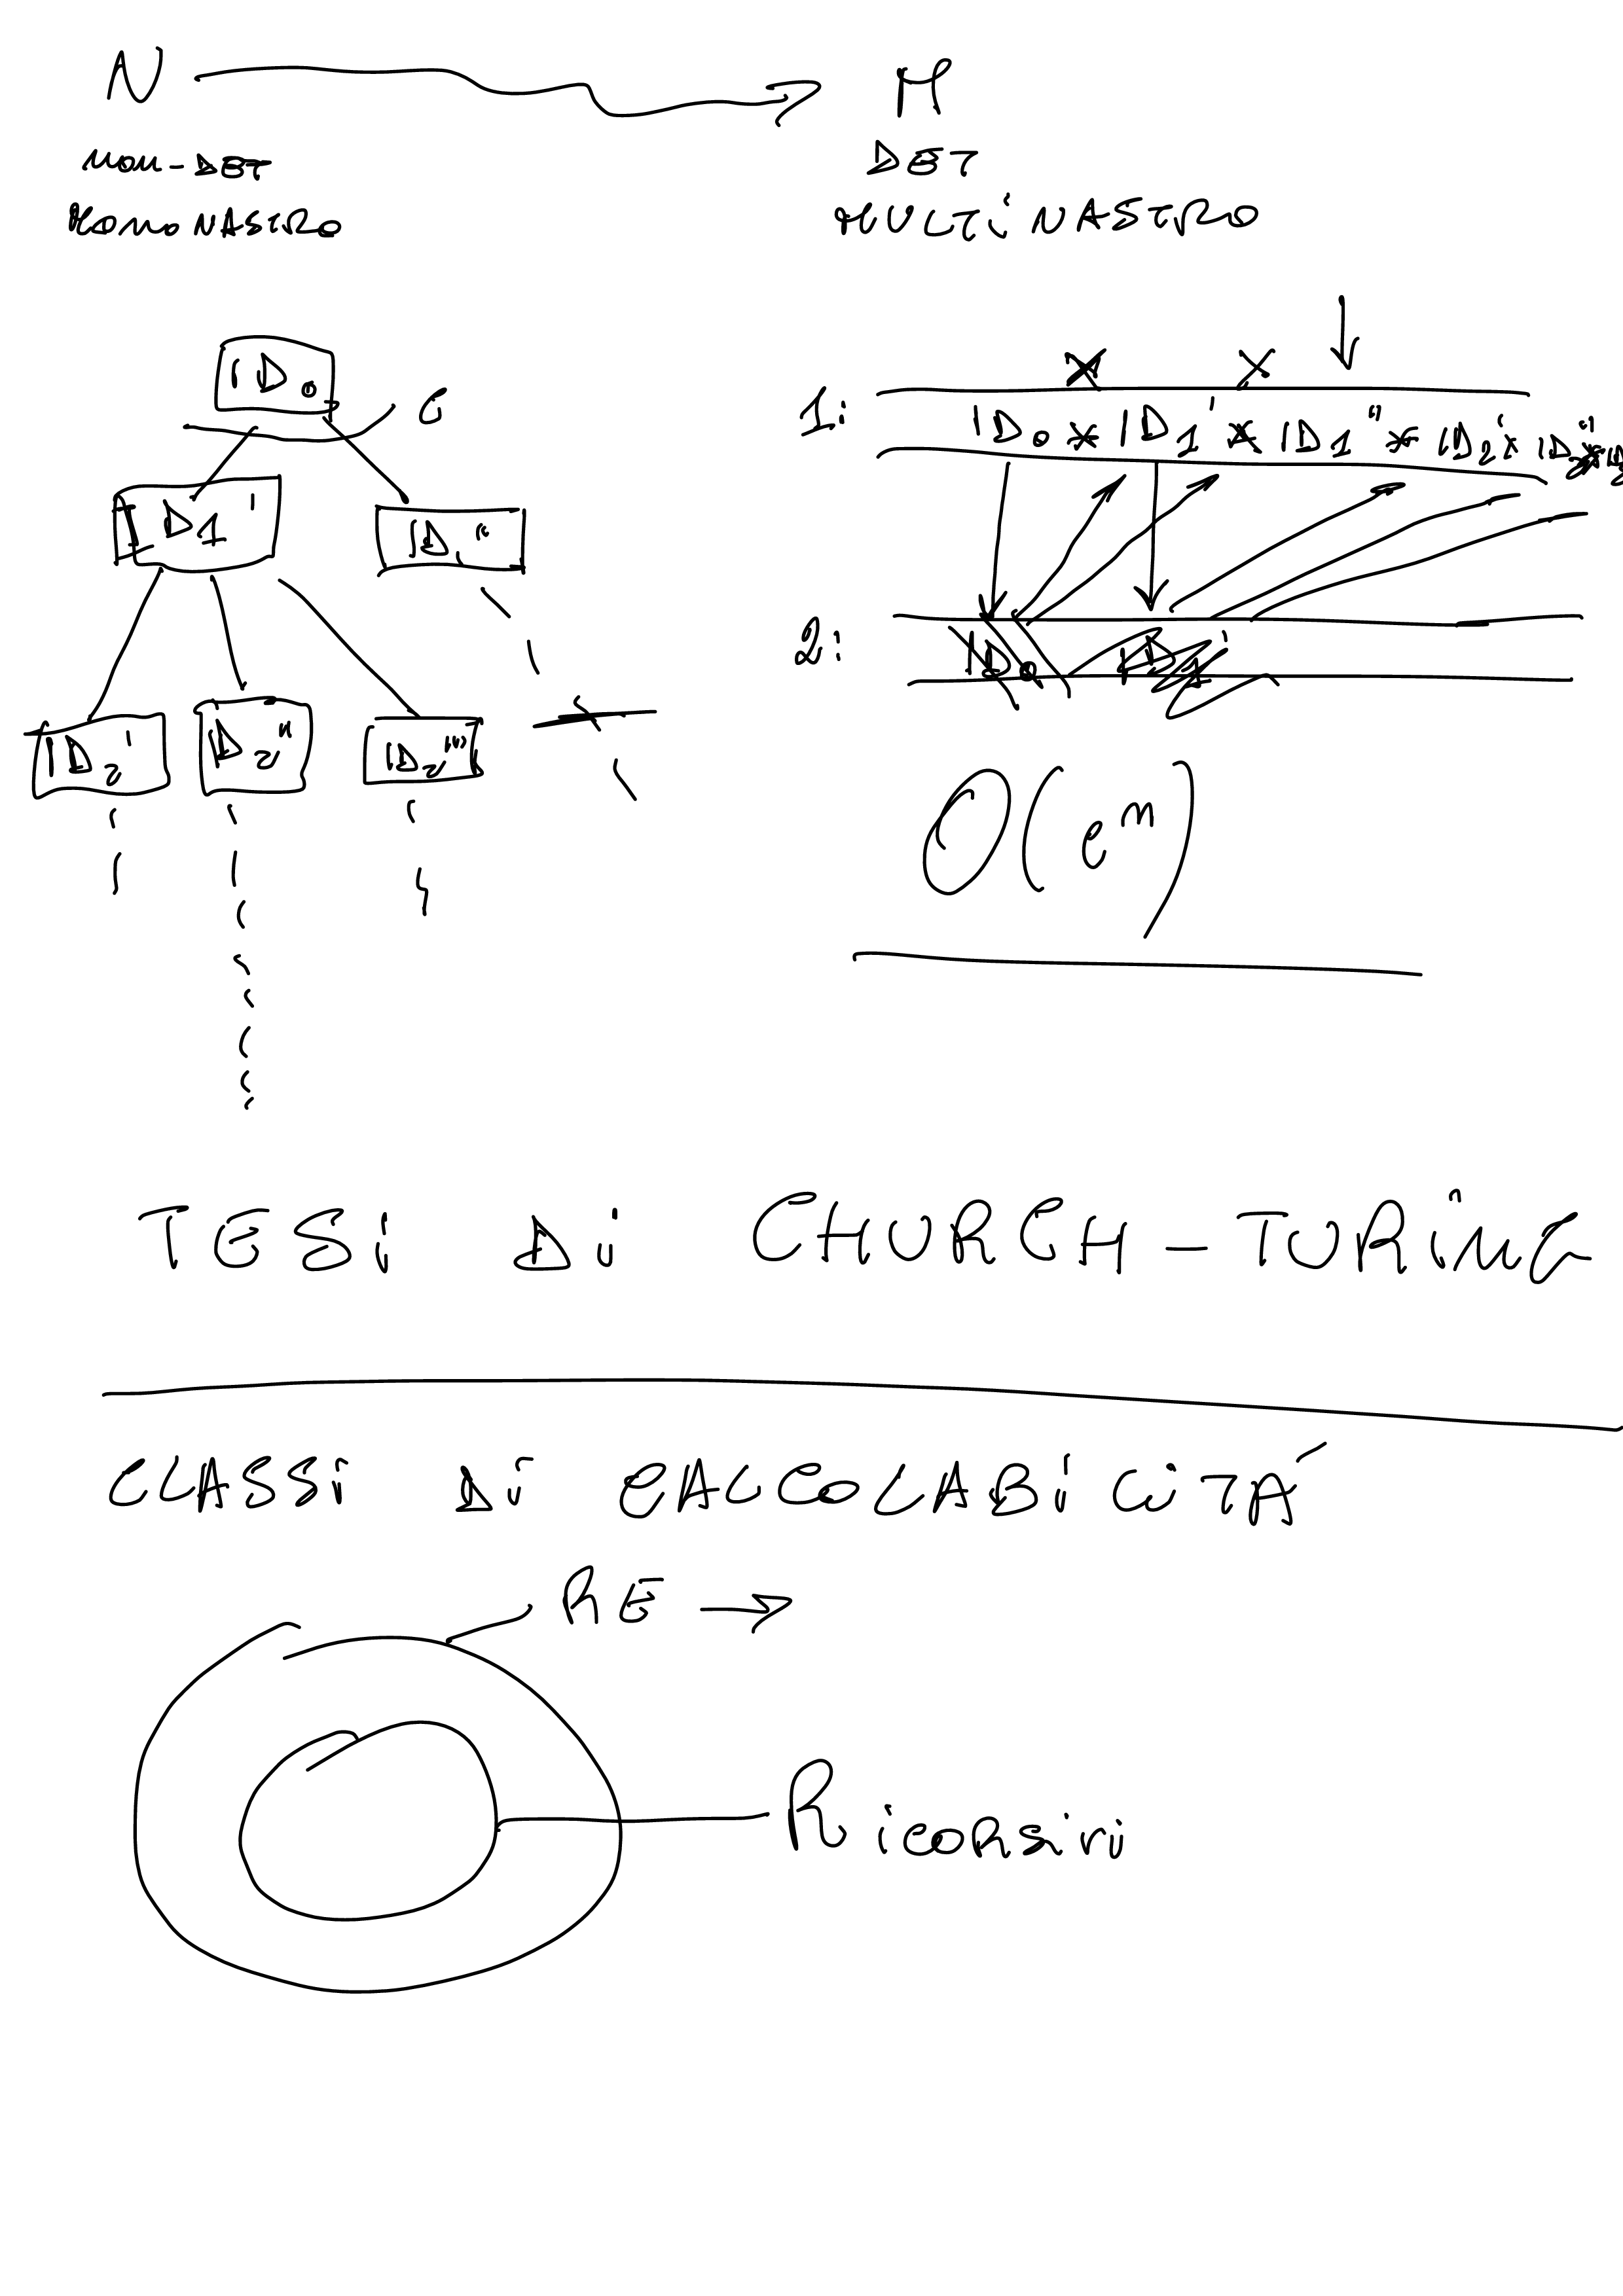 N M
NON-DET DET
MONONASTRO MULTINASTRO
ID₀
C
1: ID₀ * ID₁' * ID₁'' * ID₂' * ID₂'' *
ID₁' ID₁''
2: ID₀ ID₁'
ID₂' ID₂'' ID₂'''
O(eⁿ)
TESI DI CHURCH-TURING
CLASSI DI CALCOLABILITÁ
RE →
Ricorsivi